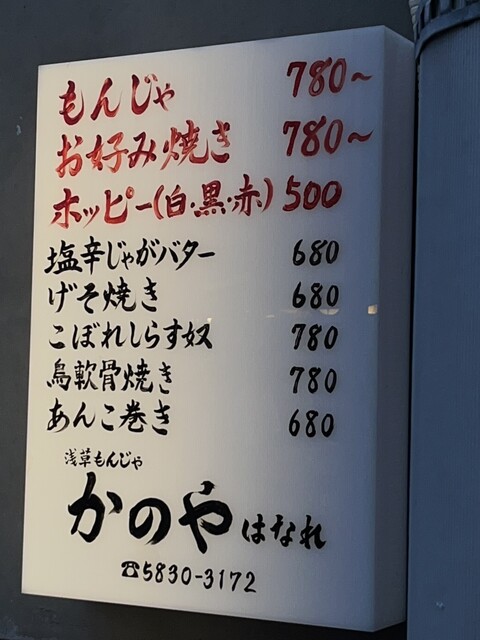 もんじゃ 780~
お好み焼き 780~
ホッピー(白・黒・赤) 500
塩辛じゃがバター 680
げそ焼き 680
こぼれしらす奴 780
鳥軟骨焼き 780
あんこ巻き 680
浅草もんじゃ
かのや はなれ
☎5830-3172